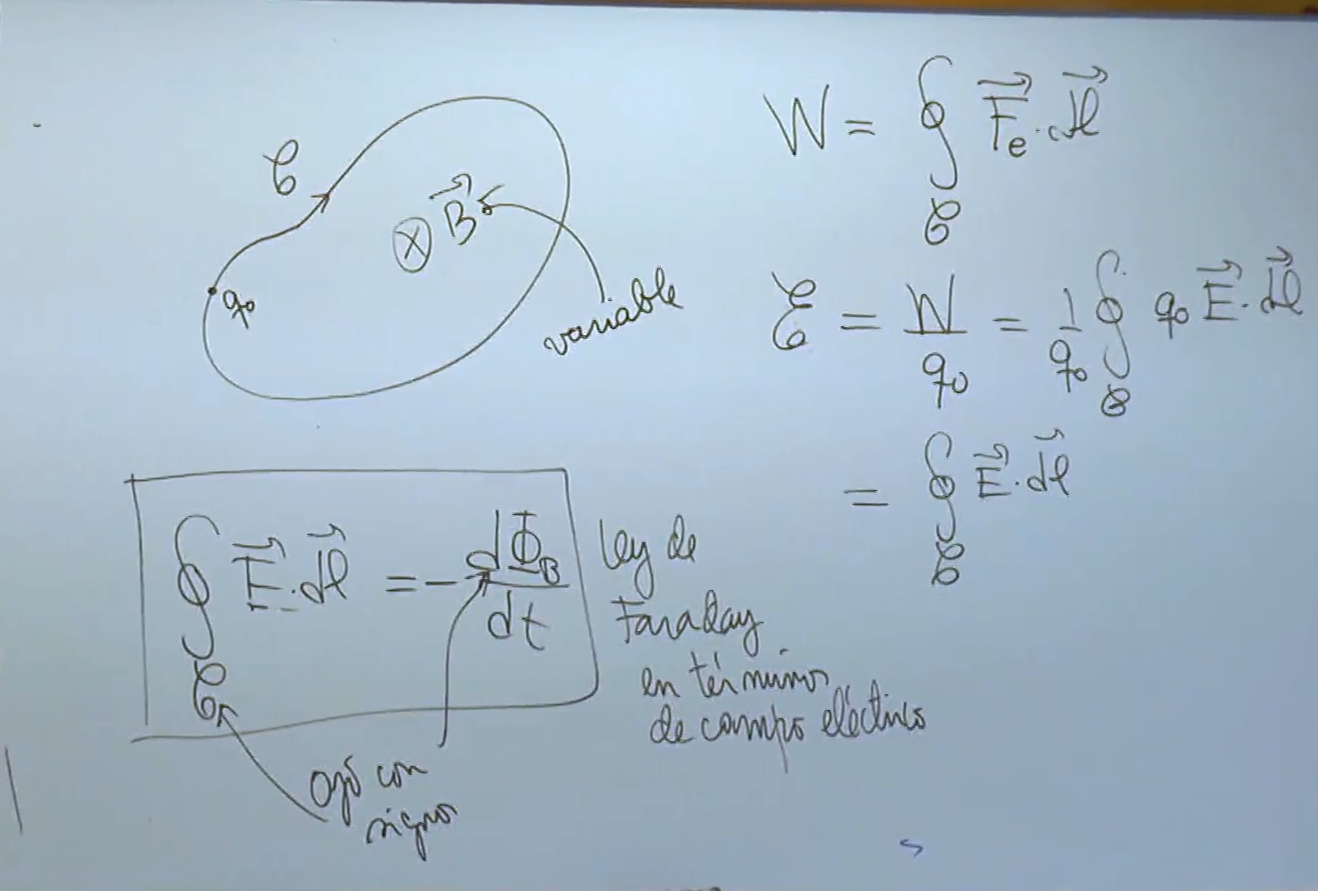 𝒞
⊗ B⃗
q₀
variable
W = ∮_𝒞 F⃗ₑ · dl⃗
ℰ = W/q₀ = 1/q₀ ∮_𝒞 q₀ E⃗ · dl⃗
= ∮_𝒞 E⃗ · dl⃗
∮_𝒞 E⃗ · dl⃗ = - dΦ_B/dt
ley de
Faraday
en términos
de campo eléctrico
ojo con
signos